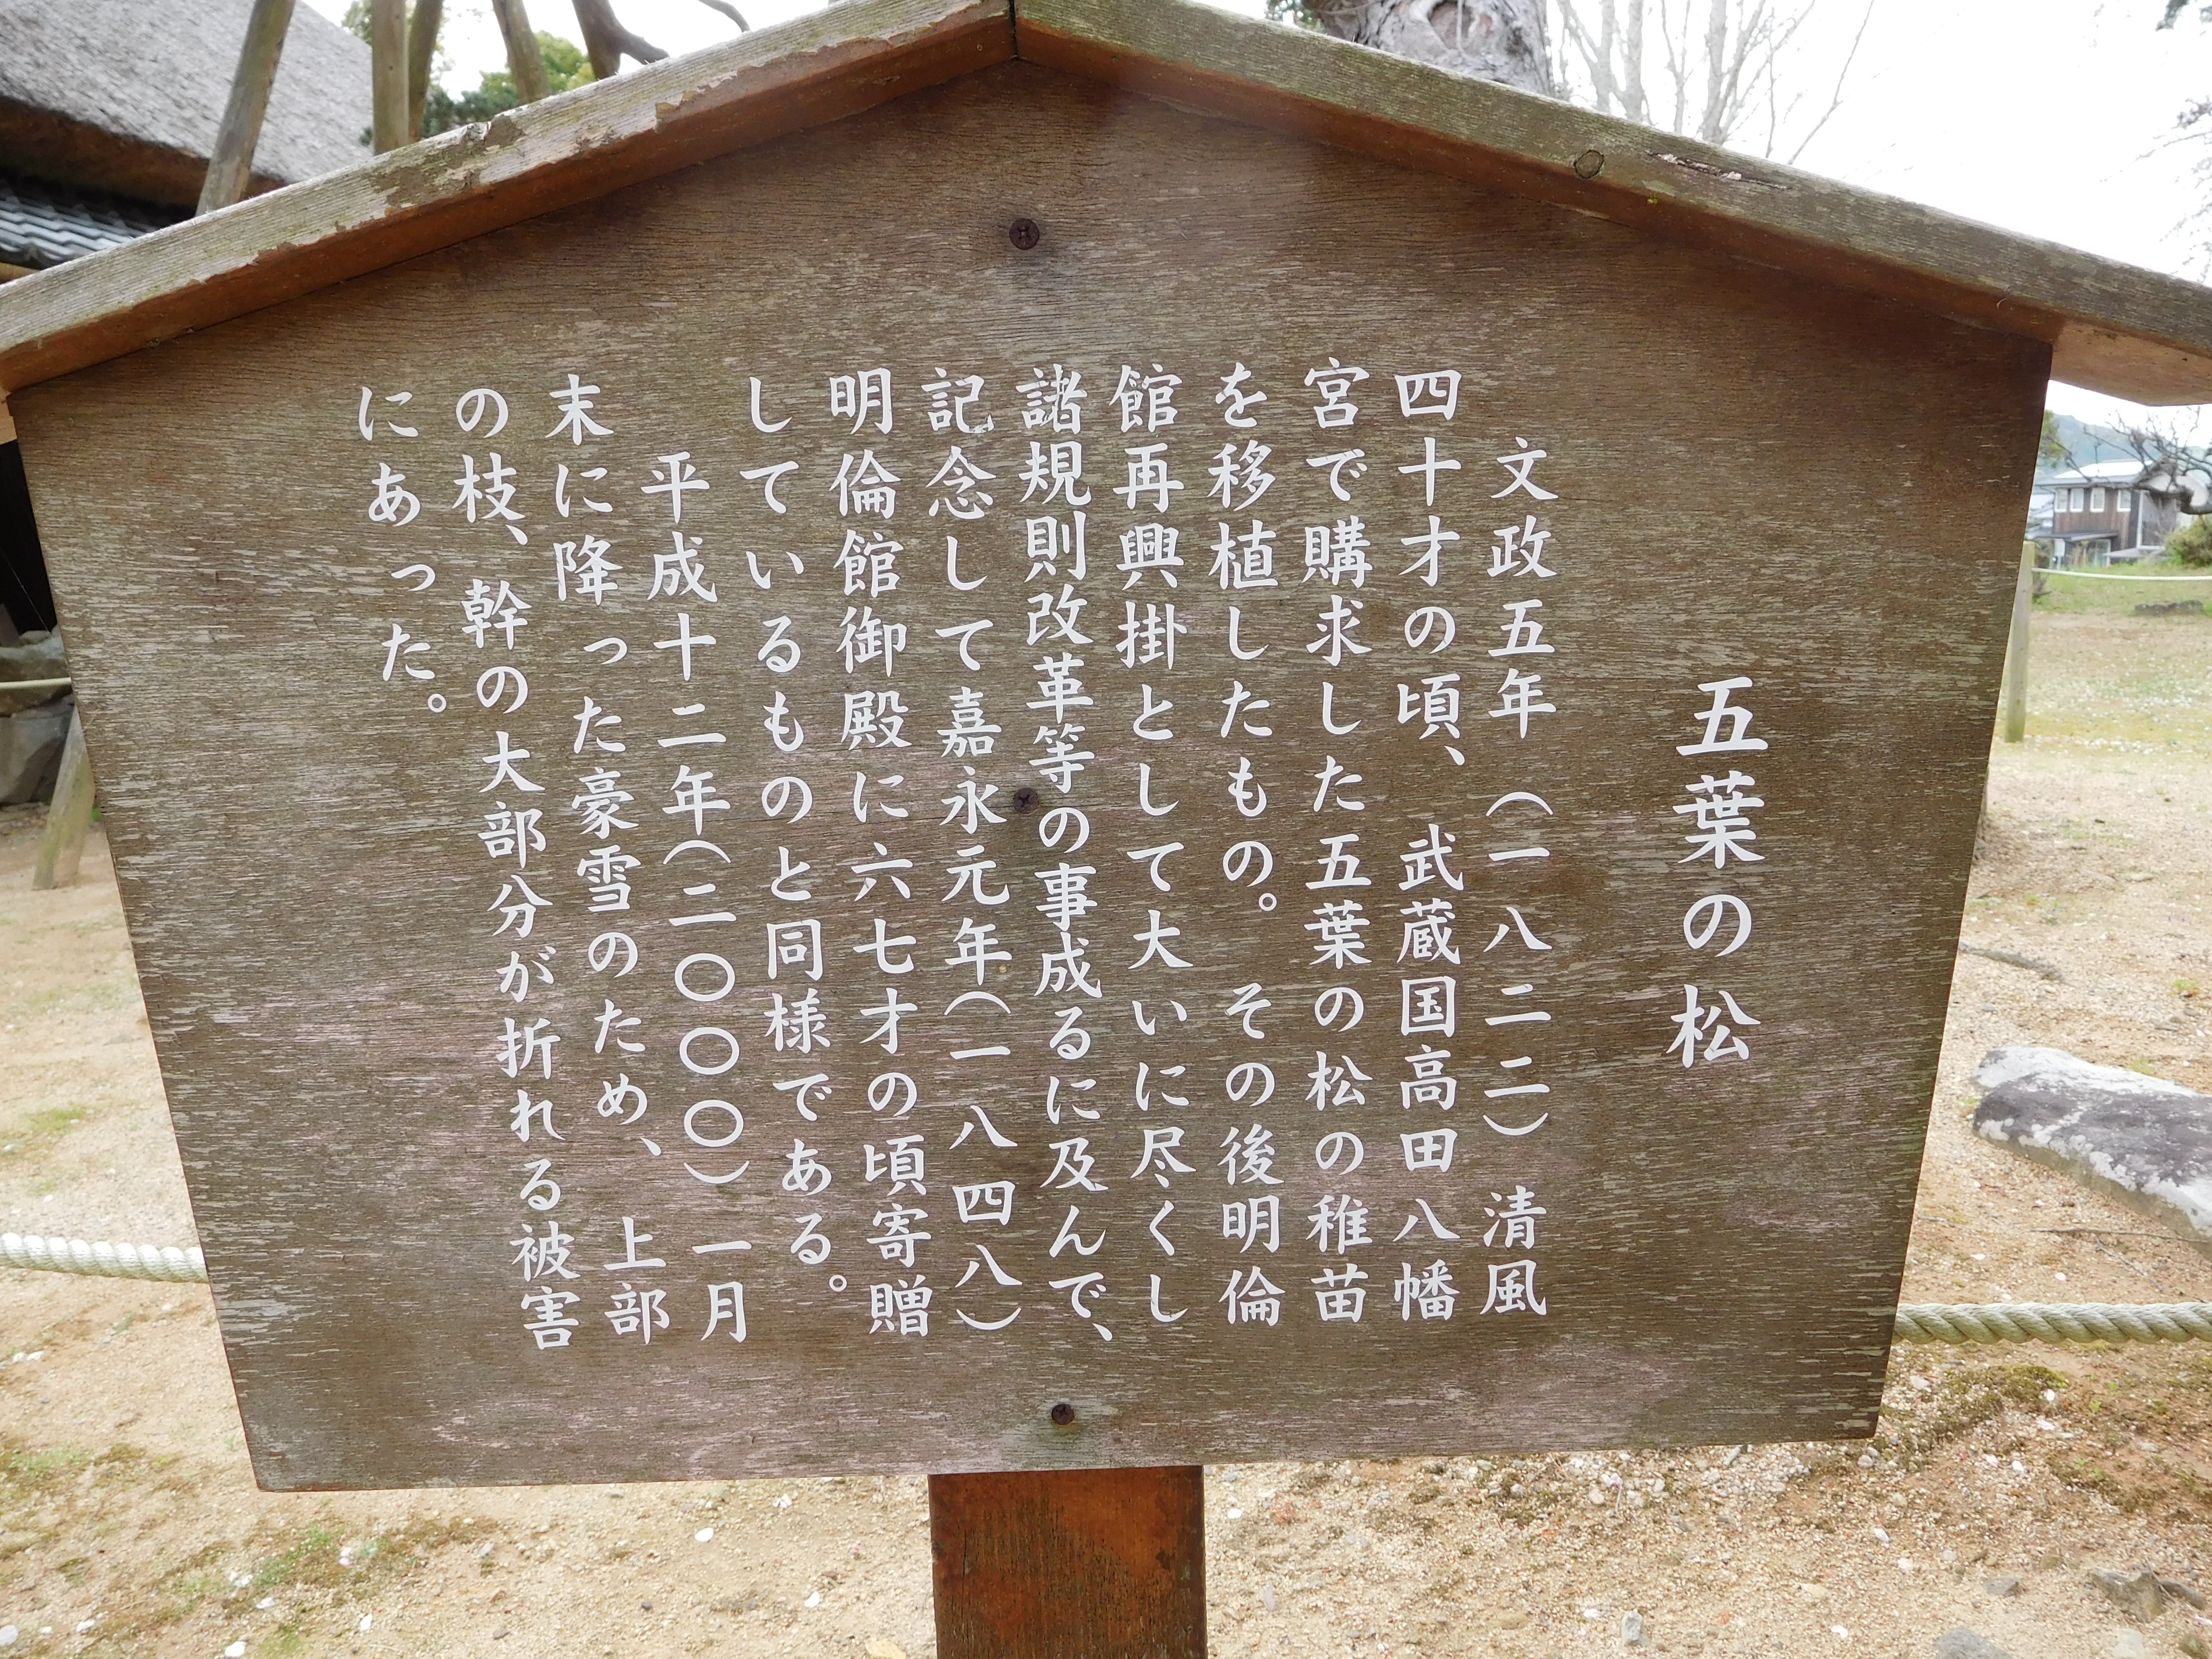 五葉の松
文政五年（一八二二）清風
四十才の頃、武蔵国高田八幡
宮で購求した五葉の松の稚苗
を移植したもの。その後明倫
館再興掛として大いに尽くし
諸規則改革等の事成るに及んで、
記念して嘉永元年（一八四八）
明倫館御殿に六七才の頃寄贈
しているものと同様である。
平成十二年（二〇〇〇）一月
末に降った豪雪のため、上部
の枝、幹の大部分が折れる被害
にあった。